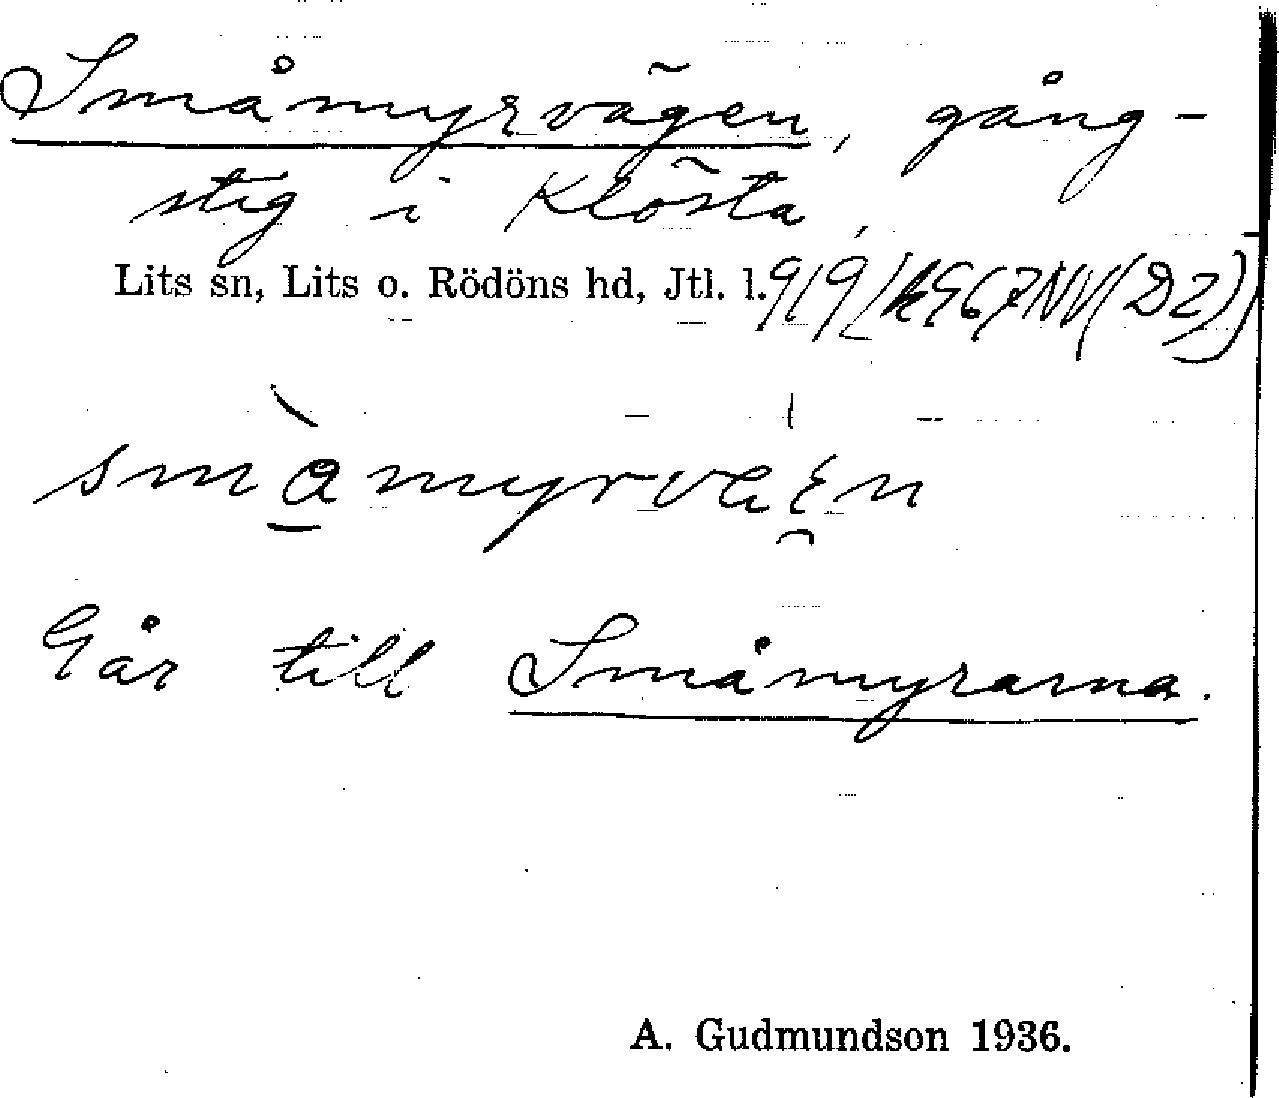 Småmyrvägen, gång-
stig i Klösta,
Lits sn, Lits o. Rödöns hd, Jtl. l.
småmyrvaɛn
Går till Småmyrarna.
A. Gudmundson 1936.